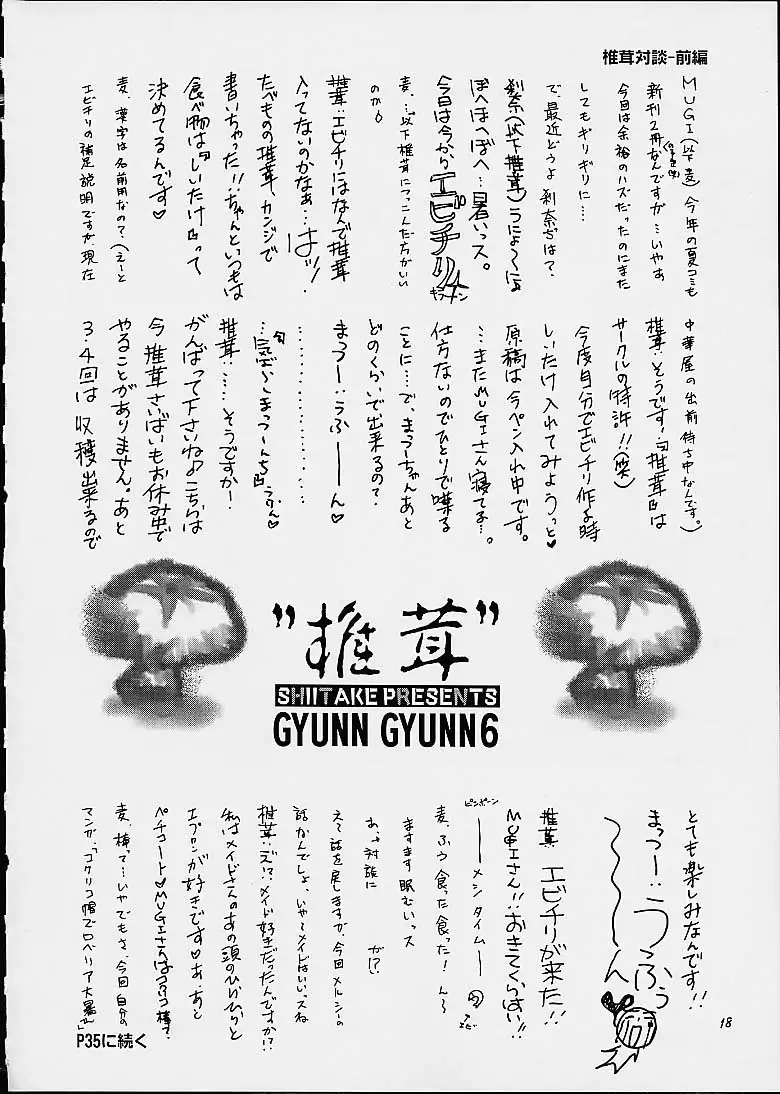 椎茸対談-前編
MUGI(以下麦)今年の夏コミも
新刊2冊なんですが…いやぁ
今回は余裕のハズだったのにまた
してもギリギリに…
で、最近どうよ刹奈ちは?
刹奈(以下椎茸)うにょ〜にょ
ぼへぼへぼへ…暑いっス。
今日は今からエビチリ
麦、…以下椎茸につっこんだ方がいい
のか?
椎茸:エビチリにはなんで椎茸
入ってないのかなぁ…はッ!
たべものの椎茸、カンジで
書いちゃった!!…ちゃんといつもは
食べ物は『しいたけ』って
決めてるんです♡
麦、漢字は名前用なの?(えーと
エビチリの補足説明ですが、現在
中華屋の出前待ち中なんです。)
椎茸:そうです!『椎茸』は
サークルの特許!!(笑)
今度自分でエビチリ作る時
しいたけ入れてみようっと♡
原稿は今ペン入れ中です。
…またMUGIさん寝てる…。
仕方ないのでひとりで喋る
ことに…で、まっつーちゃんあと
どのくらいで出来るの?
まっつー:うふーーん♡
…………………
椎茸:……そうですか!
がんばって下さいね♪こちらは
今椎茸さいばいもお休み中で
やることがありません。あと
3・4回は収穫出来るので
"椎茸"
SHIITAKE PRESENTS
GYUNN GYUNN 6
とても楽しみなんです!!
まっつー:うっふぅ
〜〜〜ん
椎茸 エビチリが来た!!
MUGIさん!!おきてくらはい!!
ピンポーン
——メシタイム——
麦、ふう食った食った!ん〜
ますます眠むいっス
あ、対談に が!?
えて話を戻しますが、今回メルシーの
話かんでしょ、いや〜メイドはいいっスね
椎茸:え!?メイド好きだったんですか!?
私はメイドさんのあの頭のひらひらと
エプロンが好きです♡あ、あと
ペチコート♡MUGIさんは
麦、棒って…いやでもさ、今回自分の
マンガ、「コクリコ帽でロベリア大暴れ」
P35に続く
18